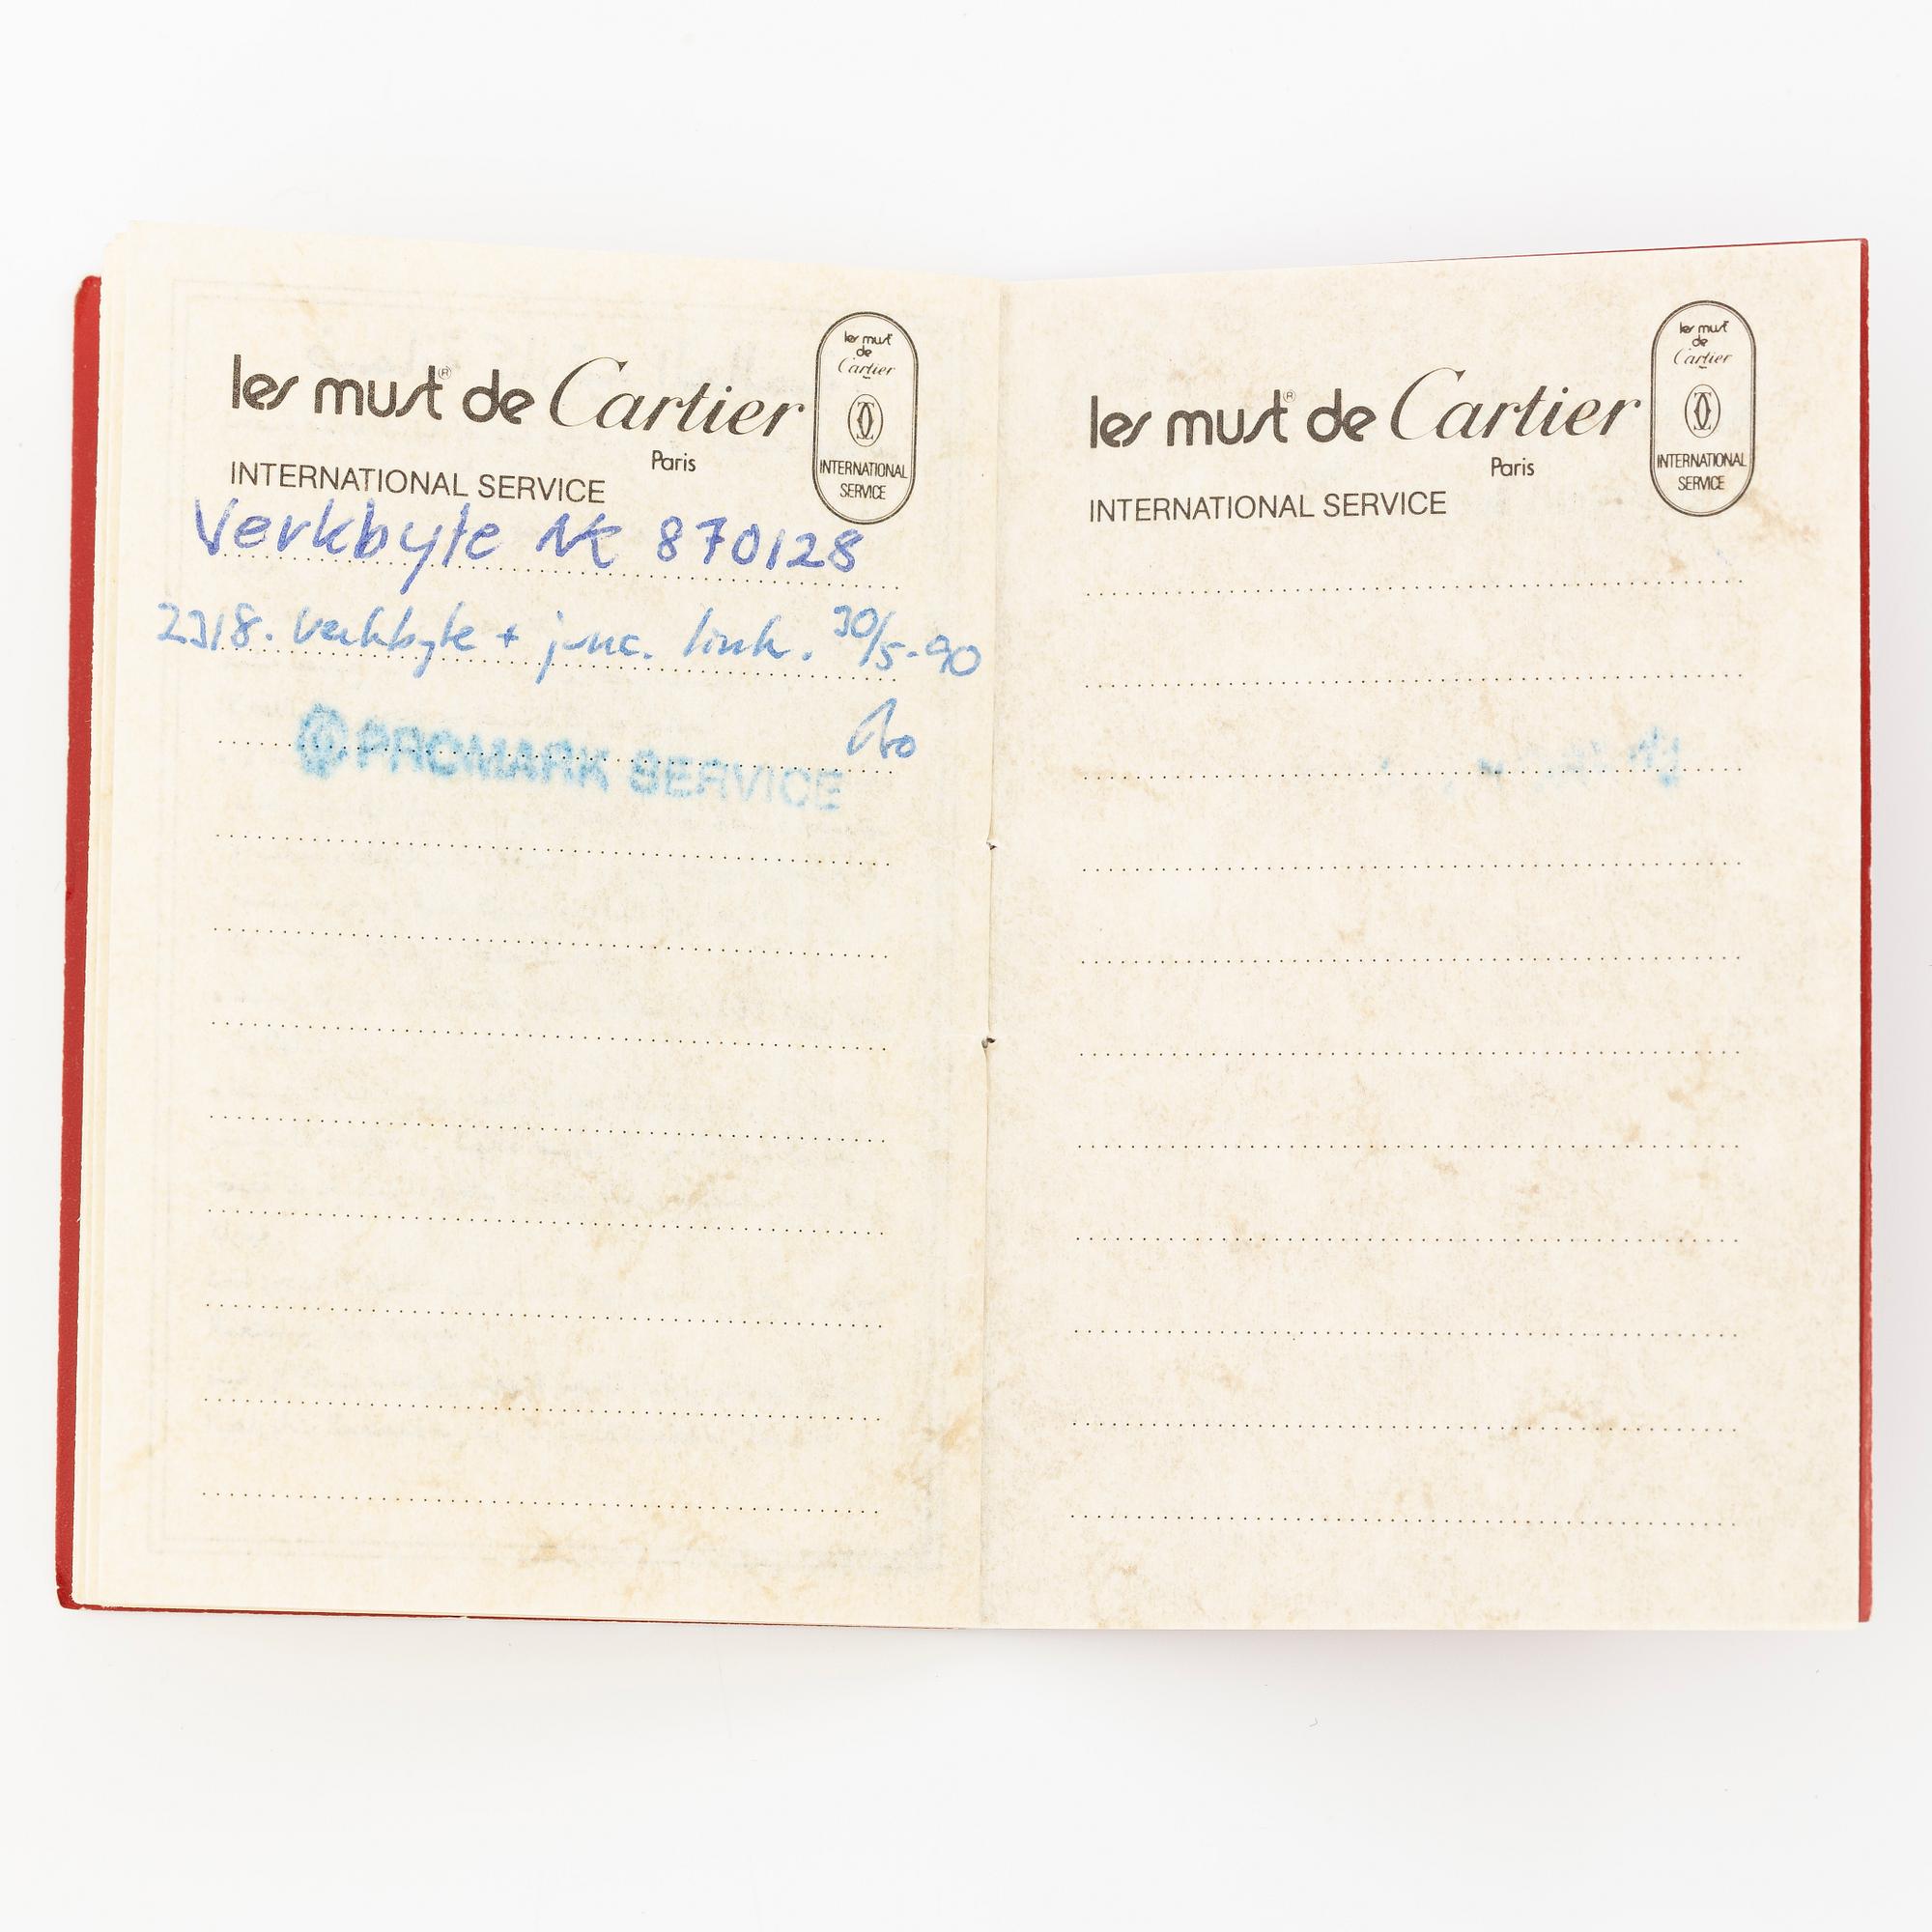 les must® de Cartier
Paris
INTERNATIONAL SERVICE
les must
de
Cartier
INTERNATIONAL
SERVICE
Verkbyte 870128
2318. verkbyte + junc. link. 30/5-90
PROMARK SERVICE
les must® de Cartier
Paris
INTERNATIONAL SERVICE
les must
de
Cartier
INTERNATIONAL
SERVICE